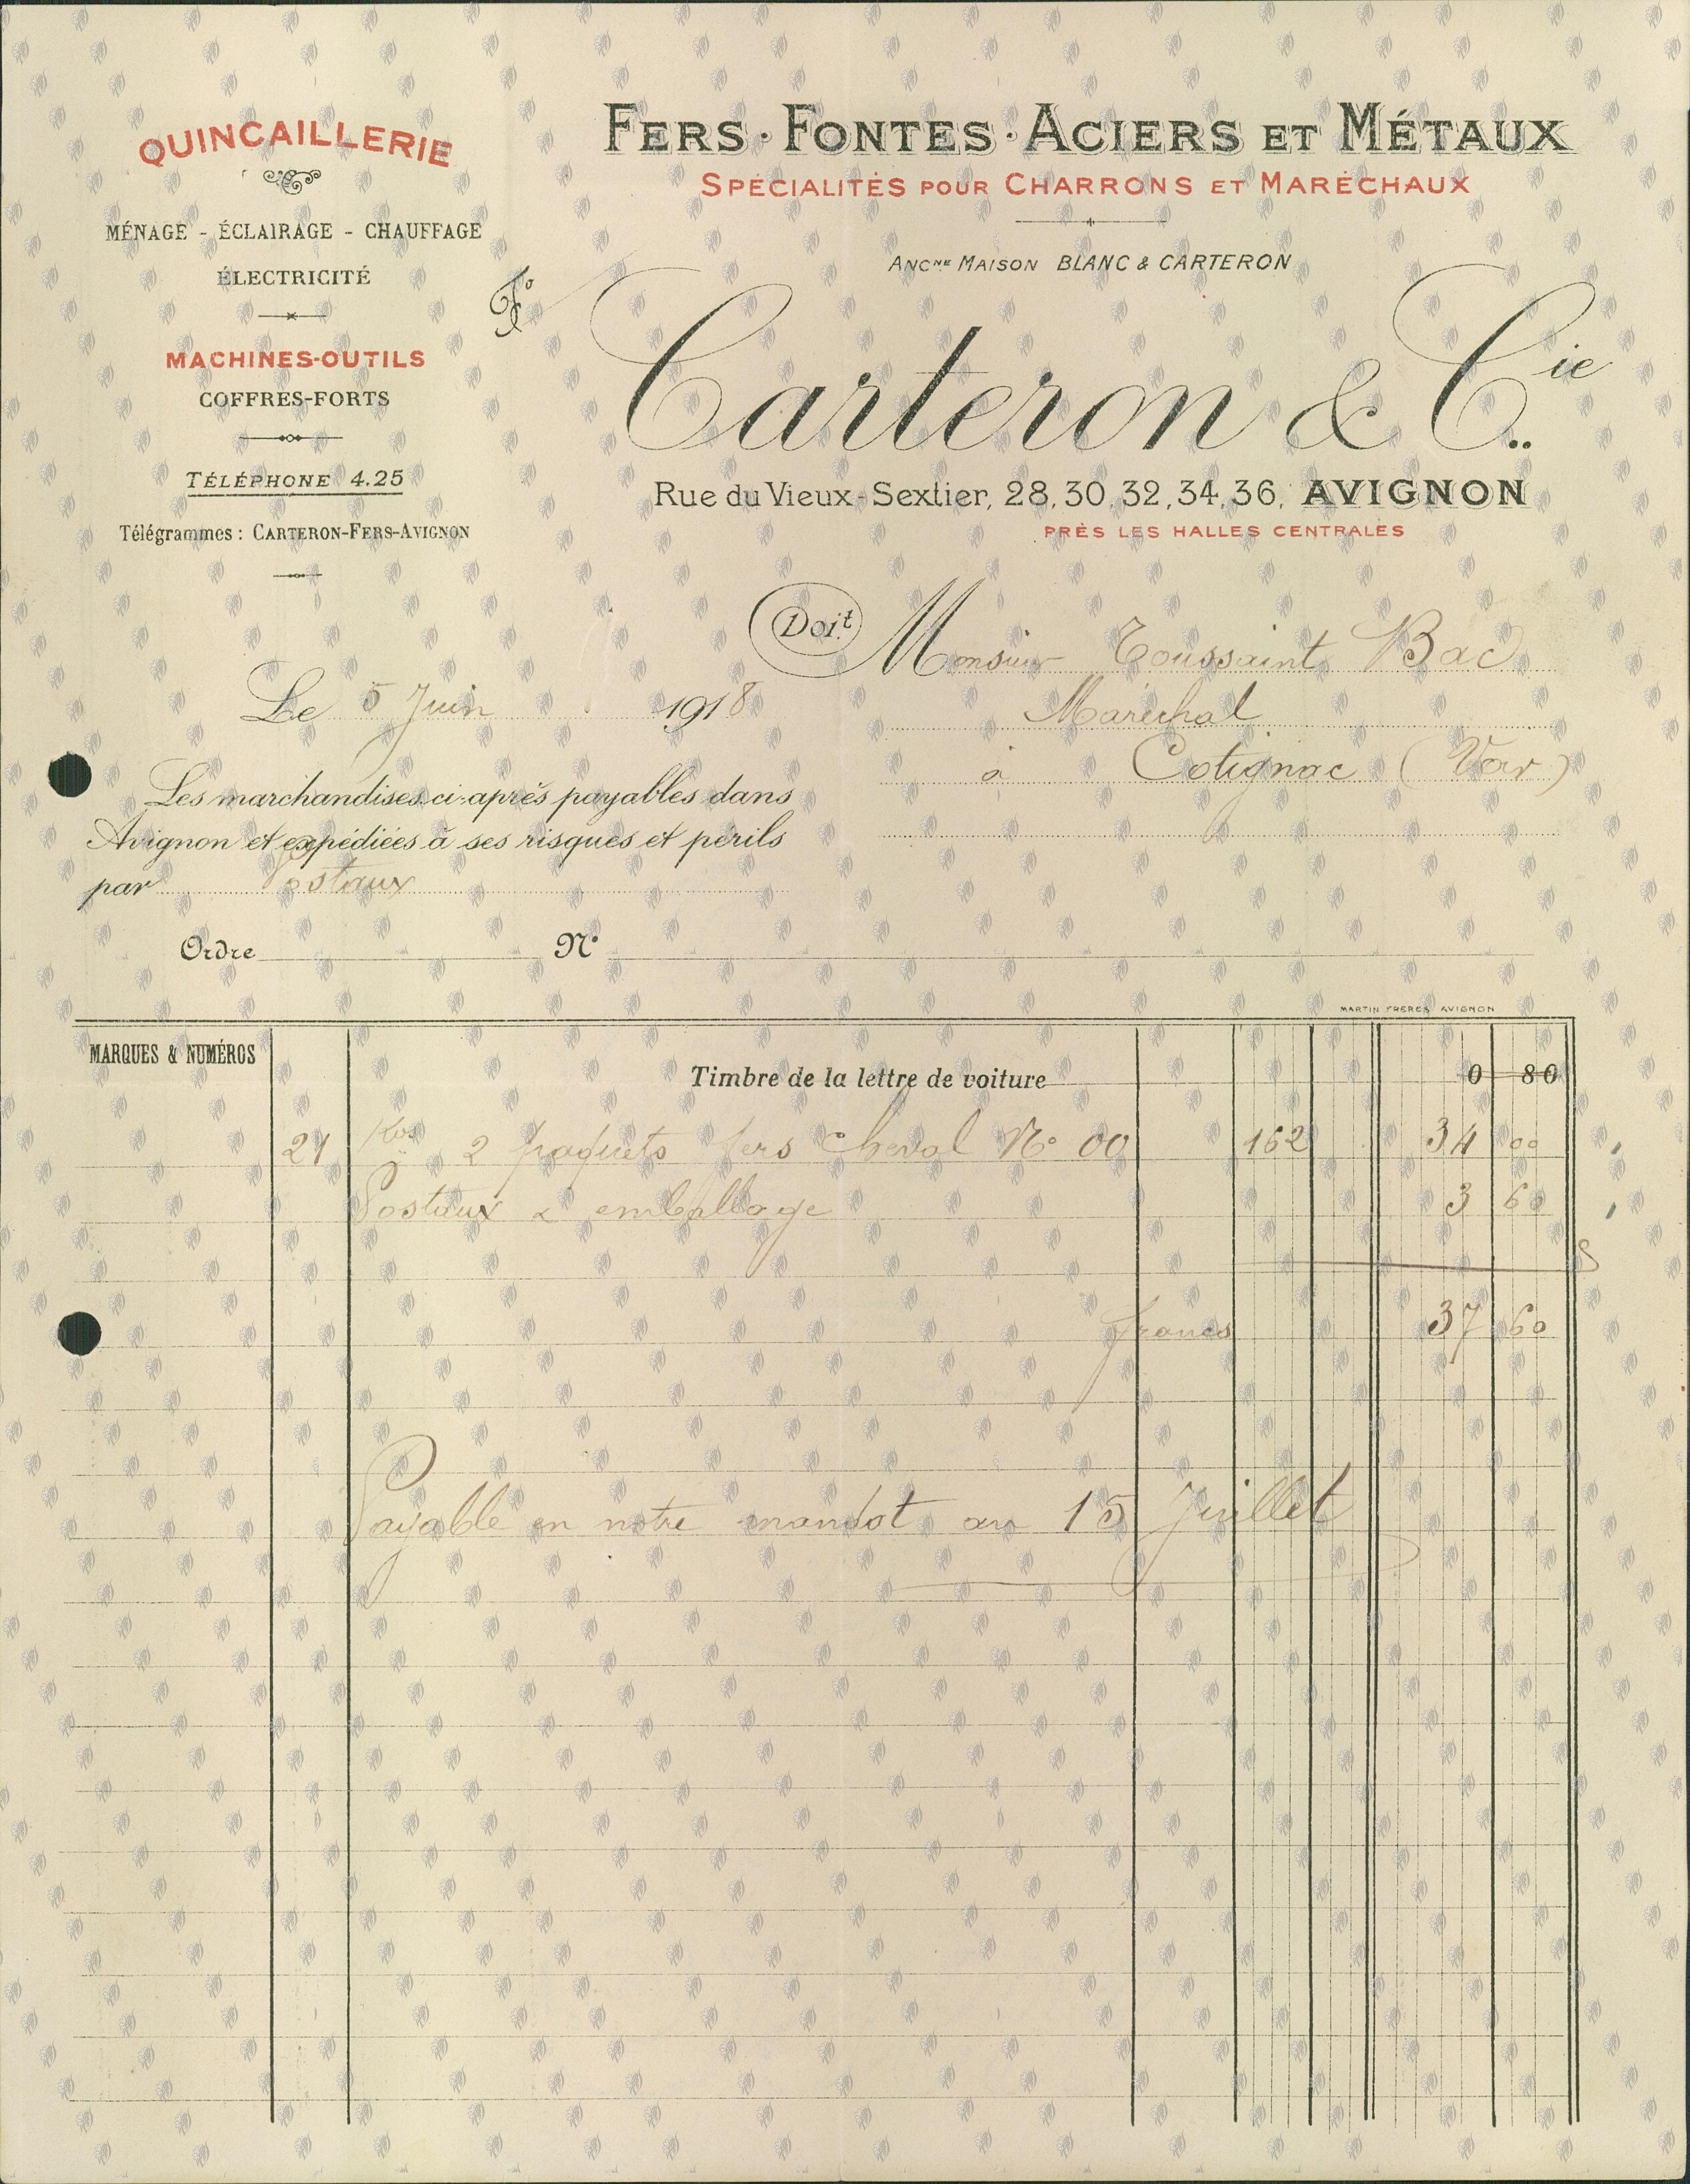 QUINCAILLERIE
MÉNAGE - ÉCLAIRAGE - CHAUFFAGE
ÉLECTRICITÉ
MACHINES-OUTILS
COFFRES-FORTS
TÉLÉPHONE 4.25
Télégrammes : CARTERON-FERS-AVIGNON
Fº
FERS · FONTES · ACIERS ET MÉTAUX
SPÉCIALITÉS POUR CHARRONS ET MARÉCHAUX
ANCNE MAISON BLANC & CARTERON
Carteron & Cie
Rue du Vieux-Sextier, 28, 30, 32, 34, 36, AVIGNON
PRÈS LES HALLES CENTRALES
Doit Monsieur Toussaint Bac
Maréchal
à Cotignac (Var)
Le 5 Juin 1918
Les marchandises ci-après payables dans
Avignon et expédiées à ses risques et périls
par Postaux
Ordre Nº
MARTIN FRERES AVIGNON
MARQUES & NUMÉROS
Timbre de la lettre de voiture 0 80
21 Kos 2 paquets fers cheval Nº 00 162 34 00
Postaux & emballage 3 60
francs 37 60
Payable en notre mandat au 15 Juillet